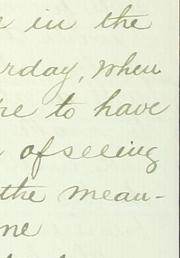 in the
rday, when
re to have
of seeing
the mean-
me